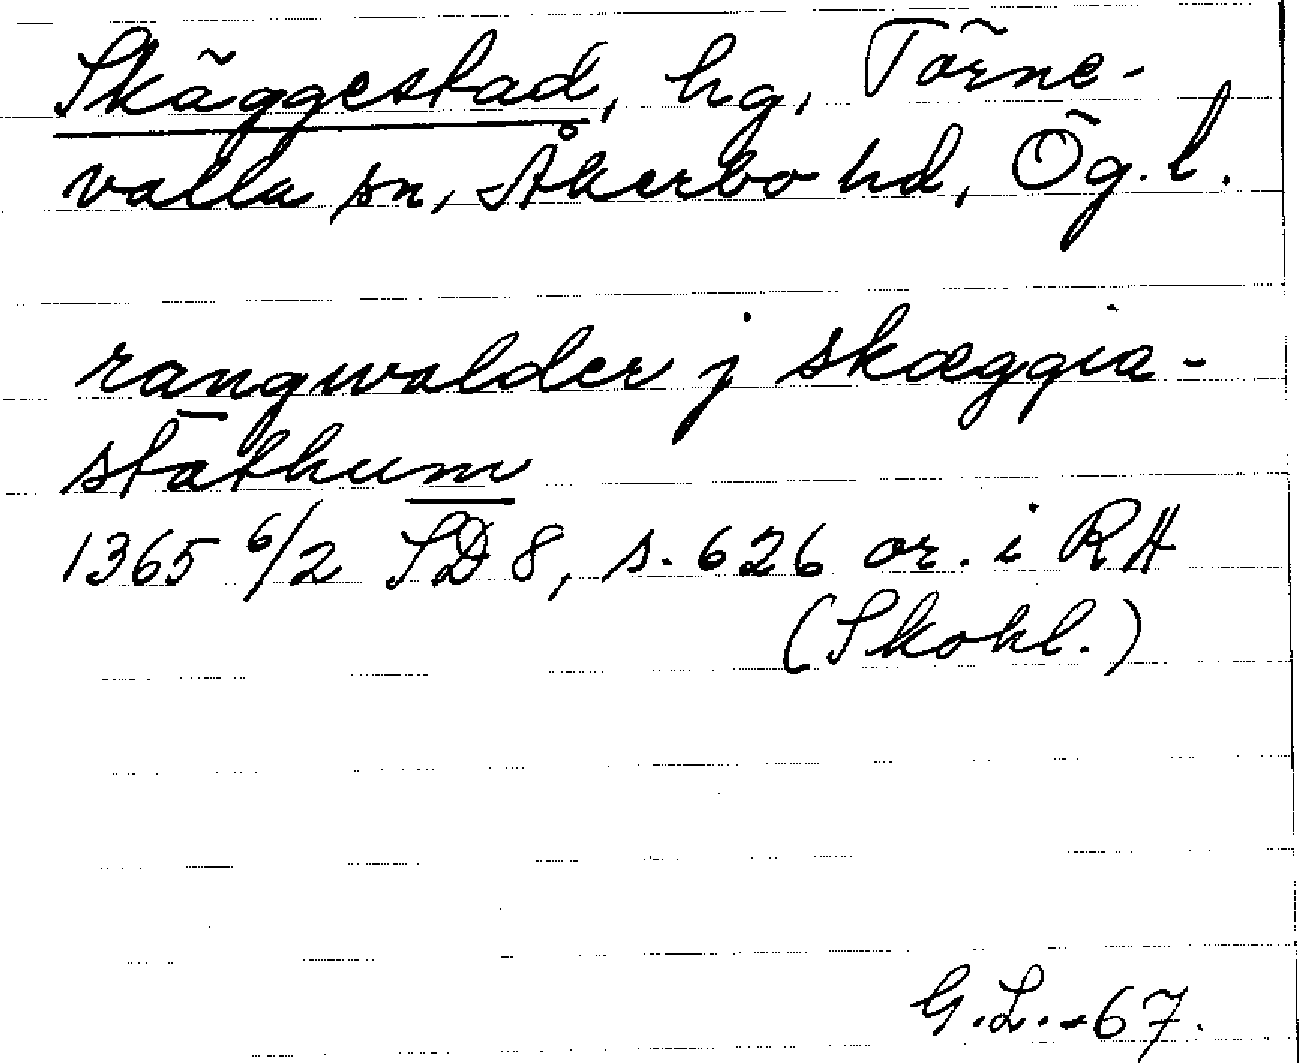 Skäggestad, hg, Törne-
valla sn, Åkerbo hd, Ög. l.
rangwalder j skæggia-
stāthum
1365 6/2 SD 8, s. 626 or. i RA
(Skokl.)
G.L. -67.